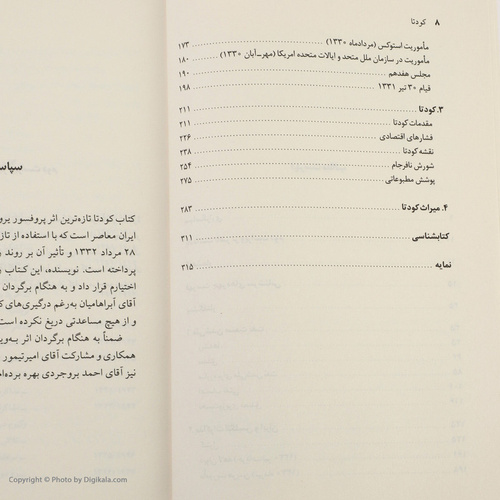 ۸ کودتا
مأموریت استوکس (مردادماه ۱۳۳۰) ۱۷۳
مأموریت در سازمان ملل متحد و ایالات متحده امریکا (مهر‌ـ‌آبان ۱۳۳۰) ۱۸۰
مجلس هفدهم ۱۹۰
قیام ۳۰ تیر ۱۳۳۱ ۱۹۸
۳. کودتا ۲۱۱
مقدمات کودتا ۲۱۱
فشارهای اقتصادی ۲۲۶
نقشه کودتا ۲۳۸
شورش نافرجام ۲۵۴
پوشش مطبوعاتی ۲۷۵
۴. میراث کودتا ۲۸۳
کتابشناسی ۳۱۱
نمایه ۳۱۵
سپاس
کتاب کودتا تازه‌ترین اثر پروفسور یرو
ایران معاصر است که با استفاده از تاز
۲۸ مرداد ۱۳۳۲ و تأثیر آن بر روند ر
پرداخته است. نویسنده، این کتاب ر
اختیارم قرار داد و به هنگام برگردان
آقای آبراهامیان به‌رغم درگیری‌های ک
و از هیچ مساعدتی دریغ نکرده است
ضمناً به هنگام برگردان اثر به‌وی
همکاری و مشارکت آقای امیرتیمور
نیز آقای احمد بروجردی بهره برده‌ام
Copyright © Photo by Digikala.com